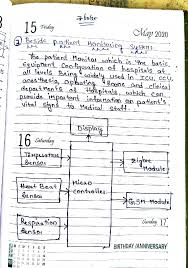 15 Friday
May 2020
Beside Patient Monitoring System
The patient Monitor which is the basic
equipment Configuration of hospitals at
all levels Being widely used in ICU, CCU,
anesthesia, operating Rooms and clinical
departments of Hospitals, which can
provide important information on patient's
vital signs to Medical staff.
16 Saturday
Display
Temperature
Sensor
Heart Beat
Sensor
Respiration
Sensor
Micro
controller
Zigbee
Module
GSM Module
Sunday 17
BIRTHDAY / ANNIVERSARY